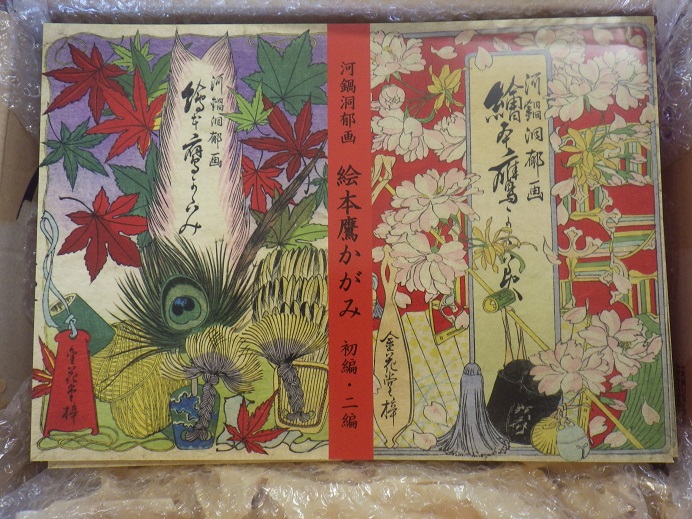 河鍋洞郁画
繪本鷹かゝ
金花堂梓
河鍋洞郁画 絵本鷹かがみ 初編・二編
河鍋洞郁画
絵本鷹かゝみ
金花堂梓